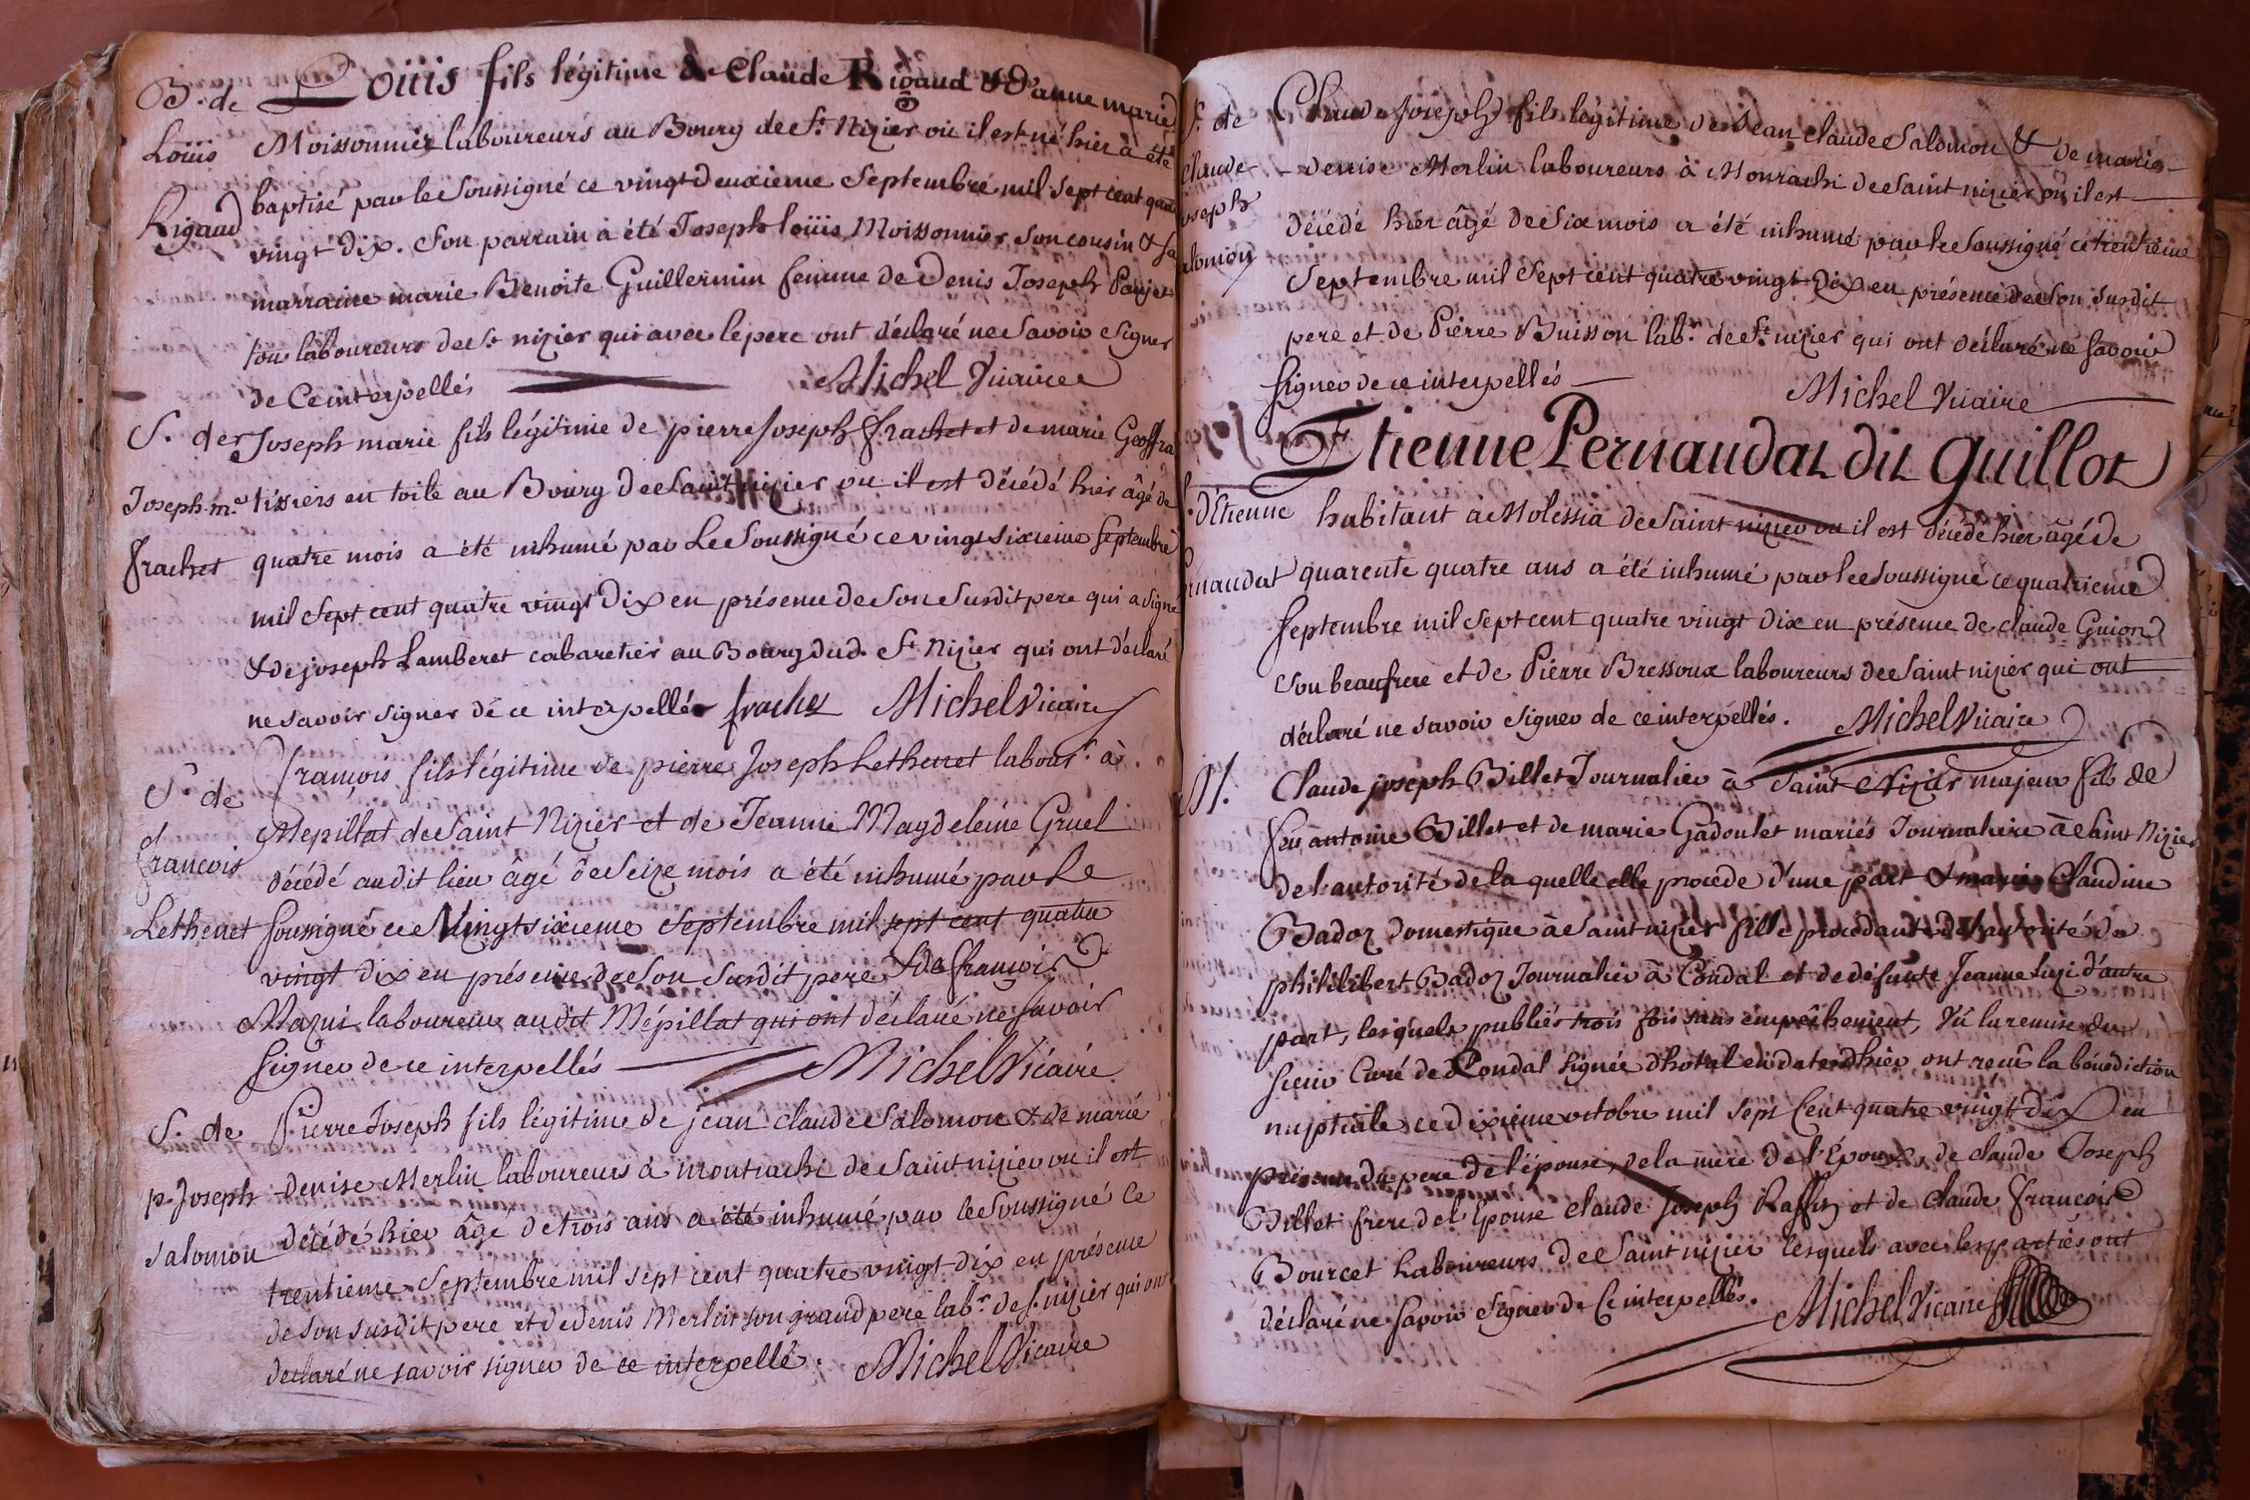 B. de
Loüis
Rigaud
Loüis fils légitime de Claude Rigaud & d'anne marie
Moissonnier laboureurs au Bourg de St. Nizier où il est né hier à été
baptisé par le Soussigné ce vingt deuxieme Septembre mil Sept cent quatre
vingt dix. Son parrain à été Joseph loüis Moissonnier Son cousin & Sa
marraine marie Benoite Guillermin femme de Denis Joseph
tou laboureurs de St. nizier qui avec le pere ont déclaré ne Savoir Signer
de Ce interpellés Michel Vicaire
S. de
Joseph m.e
frachet
Joseph marie fils légitime de pierre Joseph frachet et de marie Geoffra
tissiers en toile au Bourg de Saint nizier ou il est décédé hier âgé de
quatre mois a été inhumé par Le Soussigné ce vingt Sixieme Septembre
mil Sept cent quatre vingt Dix en présence de Son Susdit pere qui a Signé
& de joseph Lamberet cabaretier au Bourg dud. St. Nizier qui ont déclaré
ne savoir signer de ce interpellés frachet Michel Vicaire
S. de
françois
Lethenet
françois fils légitime de pierre Joseph Lethenet labour.r à
Mepillat de Saint Nizier et de Jeanne Magdeleine Gruel
décédé au dit lieu âgé de Seize mois a été inhumé par Le
Soussigné ce Vingt sixieme Septembre mil sept cent quatre
vingt dix en présence de Son Susdit pere & de françois
Mazui laboureur au dit Mépillat qui ont déclaré ne Savoir
Signer de ce interpellés Michel Vicaire
S. de
p. Joseph
Salomon
Pierre Joseph fils légitime de jean claude Salomon & de marie
denise Merlin laboureurs a montrachi de Saint nizier ou il est
décédé hier âgé de trois ans a été inhumé par le Soussigné Ce
trentieme Septembre mil sept cent quatre vingt dix en présence
de son susdit pere et de denis Merlin son grand pere lab.r de St. nizier qui ont
declaré ne savoir signer de ce interpellé. Michel Vicaire
S. de
Claude
Joseph
Salomon
Claude Joseph fils légitime de Jean Claude Salomon & de marie
denise Merlin laboureurs à Monrachi de Saint nizier où il est
décédé hier âgé de Six mois a été inhumé par le Soussigné ce trentième
Septembre mil Sept cent quatre vingt Dix en présence de Son Susdit
pere et de Pierre Buisson lab.r de St. nizier qui ont déclaré ne Savoir
Signer de ce interpellés Michel Vicaire
S. d'Etienne
Pernaudat
Etienne Pernaudat dit Guillot
habitant a Molessia de Saint nizier ou il est décédé hier âgé de
quarente quatre ans a été inhumé par le Soussigné ce quatrieme
Septembre mil Sept cent quatre vingt dix en présence de claude Guion
Son beaufrere et de Pierre Bressoux laboureurs de Saint nizier qui ont
déclaré ne savoir signer de ce interpellés. Michel Vicaire
M.
Claude joseph Billet Journalier à Saint Nizier majeur fils de
feu antoine Billet et de marie Gadoulet mariés Journaliere à Saint Nizier
de l'autorité de la quelle elle procede d'une part & marie Claudine
Badoz domestique à Saint nizier fille procédante de l'autorité de
philibert Badoz Journalier à Condal et de défunte Jeanne d'autre
part, lesquels publiés trois fois sans empêchement, Vû la remise du
Sieur Curé de Condal signée en date d'hier, ont reçu la bénédiction
nuptiale ce dixieme octobre mil Sept Cent quatre vingt Dix en
présence du pere de l'épouse, de la mere de l'Epoux, de claude Joseph
Billet frere de l'Epouse claude Joseph Raffin et de Claude François
Bourcet Laboureurs de Saint nizier lesquels avec les parties ont
déclaré ne Savoir Signer de Ce interpellés. Michel Vicaire